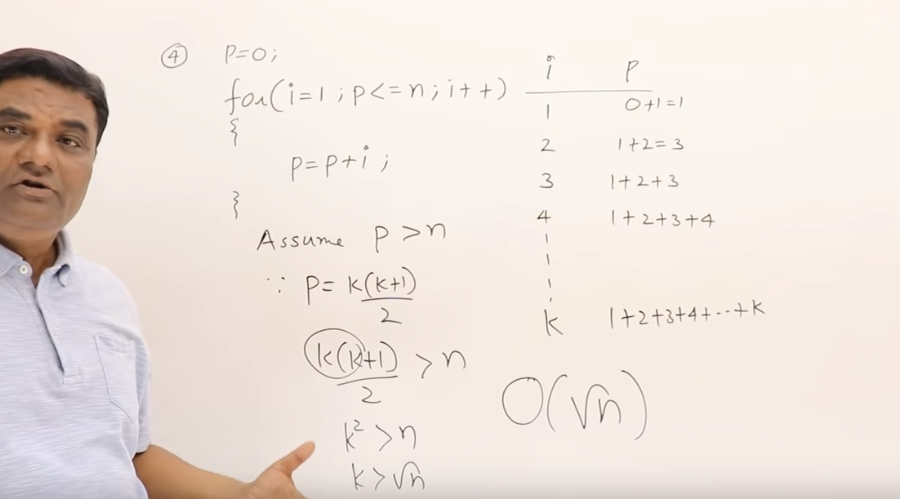 ④ P=0;
for(i=1; P<=n; i++)
{
P=P+i;
}
Assume P>n
∵ P=k(k+1)/2
k(k+1)/2 > n
k²>n
k>√n
i P
1 0+1=1
2 1+2=3
3 1+2+3
4 1+2+3+4
k 1+2+3+4+--+k
O(√n)